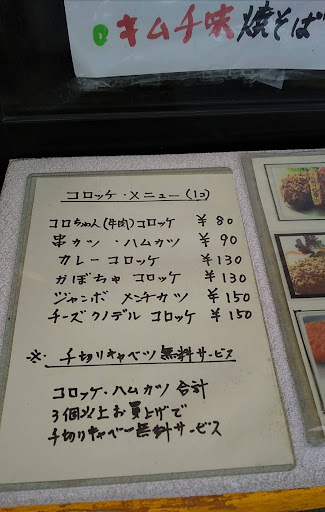 キムチ味焼そば
コロッケ・メニュー (1コ)
コロちゃん (牛肉) コロッケ ¥80
串カツ・ハムカツ ¥90
カレーコロッケ ¥130
かぼちゃ コロッケ ¥130
ジャンボ メンチカツ ¥150
チーズクノデル コロッケ ¥150
※. 千切りキャベツ無料サービス
コロッケ・ハムカツ 合計
3個以上お買上げで
千切りキャベー無料サービス